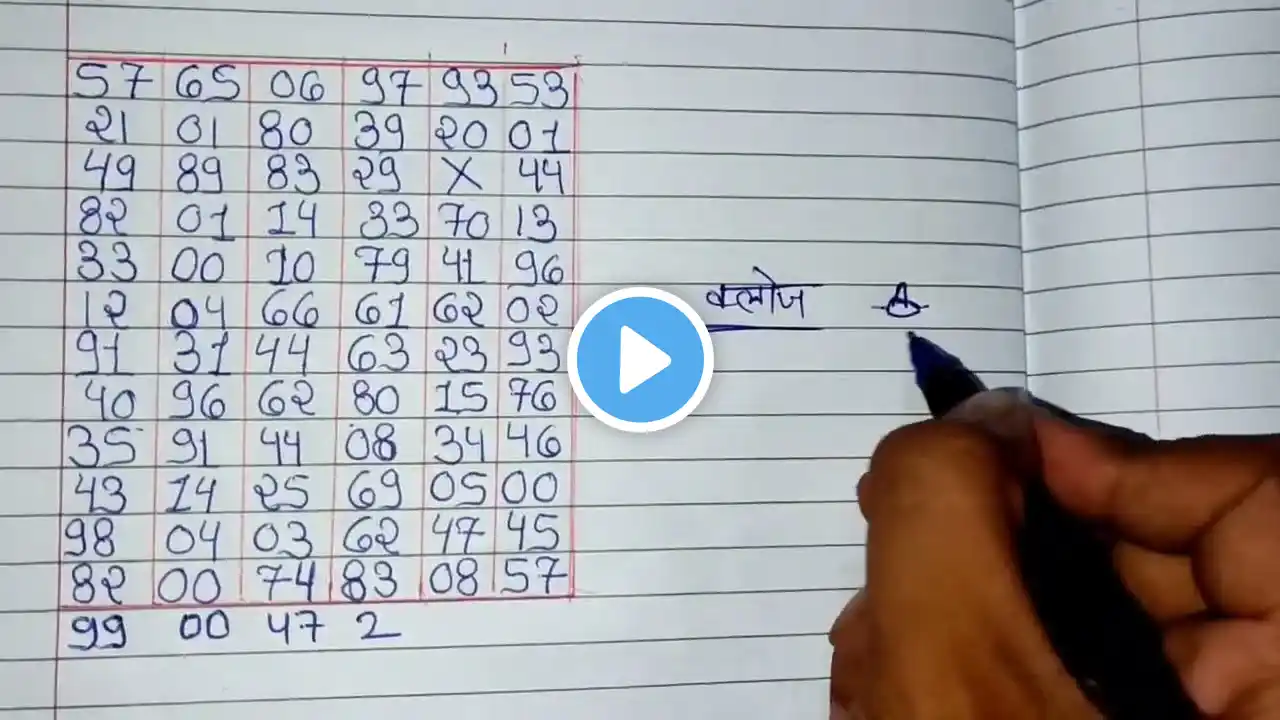 57 65 06 97 93 53
21 01 80 39 20 01
49 89 83 29 X 44
82 01 14 33 70 13
33 00 10 79 41 96
12 04 66 61 62 02
क्लोज
91 31 44 63 23 93
40 96 62 80 15 76
35 91 44 08 34 46
43 14 25 69 05 00
98 04 03 62 47 45
82 00 74 83 08 57
99 00 47 2